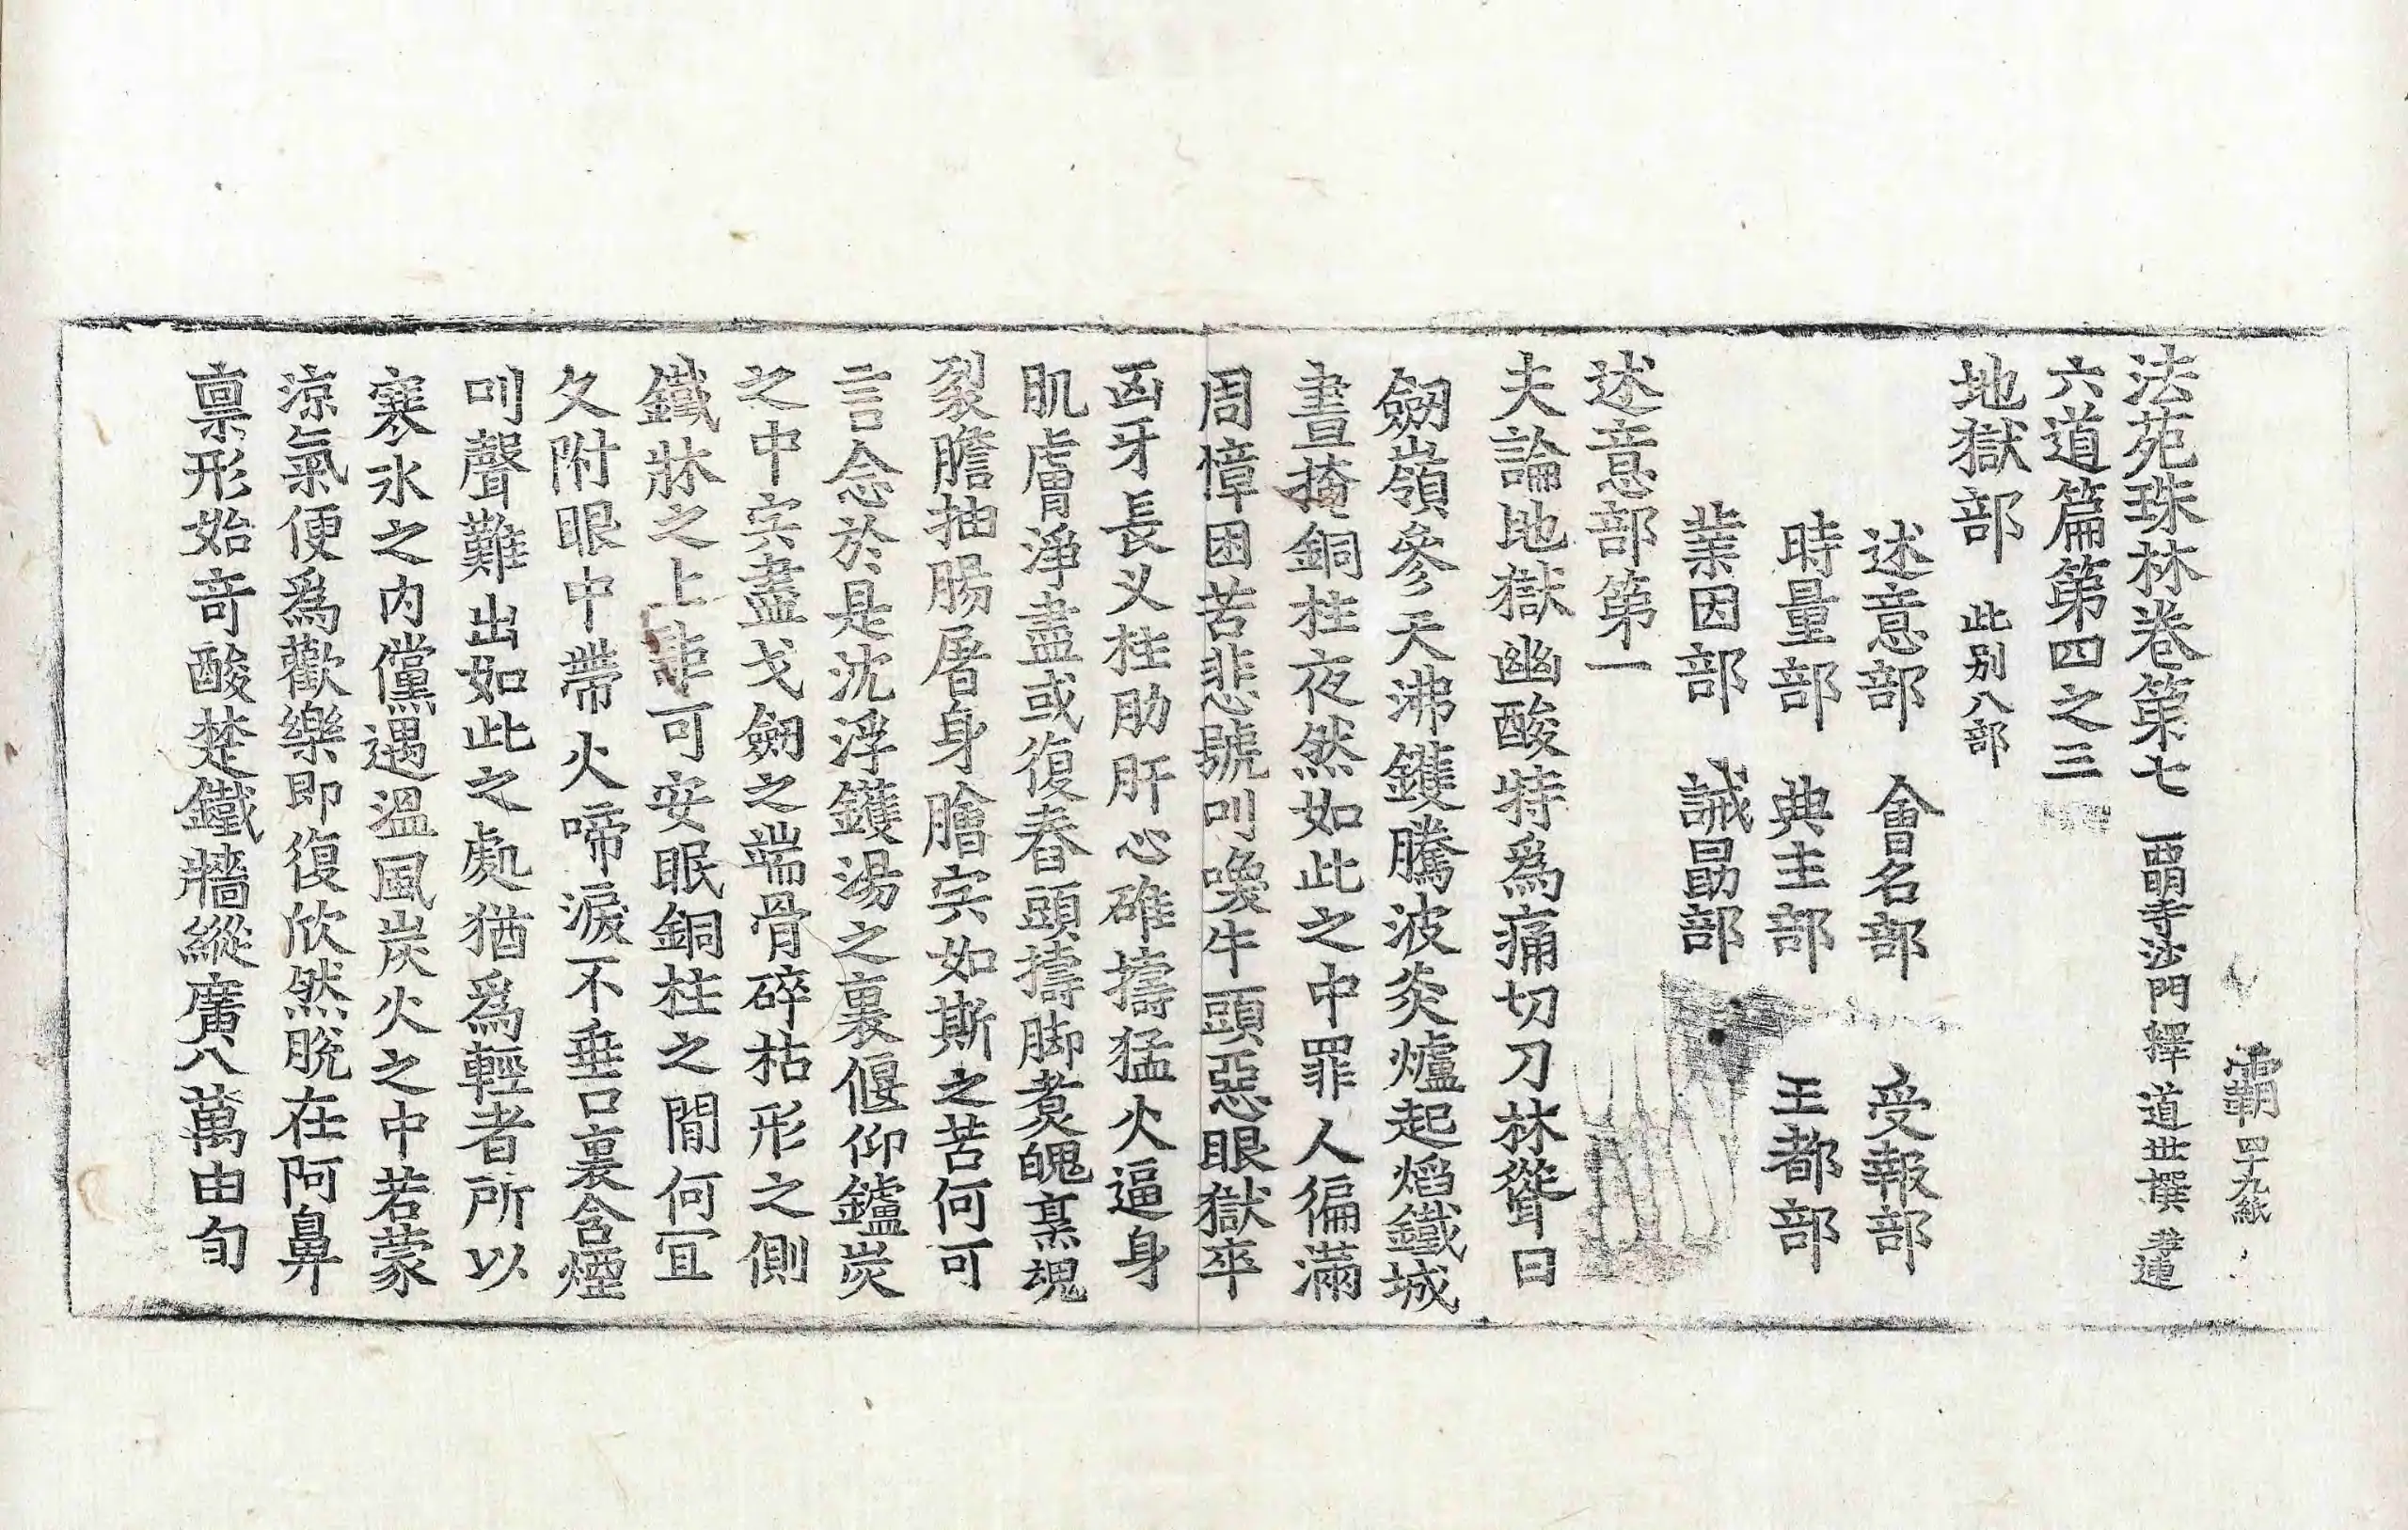 霸 四十九紙
法苑珠林卷第七 西明寺沙門釋 道世撰
六道篇第四之三
地獄部 此别八部
述意部 會名部 受報部
時量部 典主部 王都部
業因部 誡勗部
述意部第一
夫論地獄幽酸特爲痛切刀林聳日
劒嶺參天沸鑊騰波炎爐起熖鐵城
晝掩銅柱夜然如此之中罪人徧滿
周慞困苦悲號叫喚牛頭惡眼獄卒
凶牙長义拄肋肝心碓擣猛火逼身
肌膚淨盡或復舂頭擣脚煑魄烹魂
裂膽抽腸屠身膾㝏如斯之苦何可
言念於是沈浮鑊湯之裏偃仰鑪炭
之中㝏盡戈劒之端骨碎枯形之側
鐵牀之上詎可安眠銅柱之間何冝
久附眼中帶火啼淚不垂口裏含煙
叫聲難出如此之處猶爲輕者所以
寒氷之内儻遇溫風炭火之中若蒙
涼氣便爲歡樂即復欣然脫在阿鼻
禀形始奇酸楚鐵牆縱廣八萬由旬